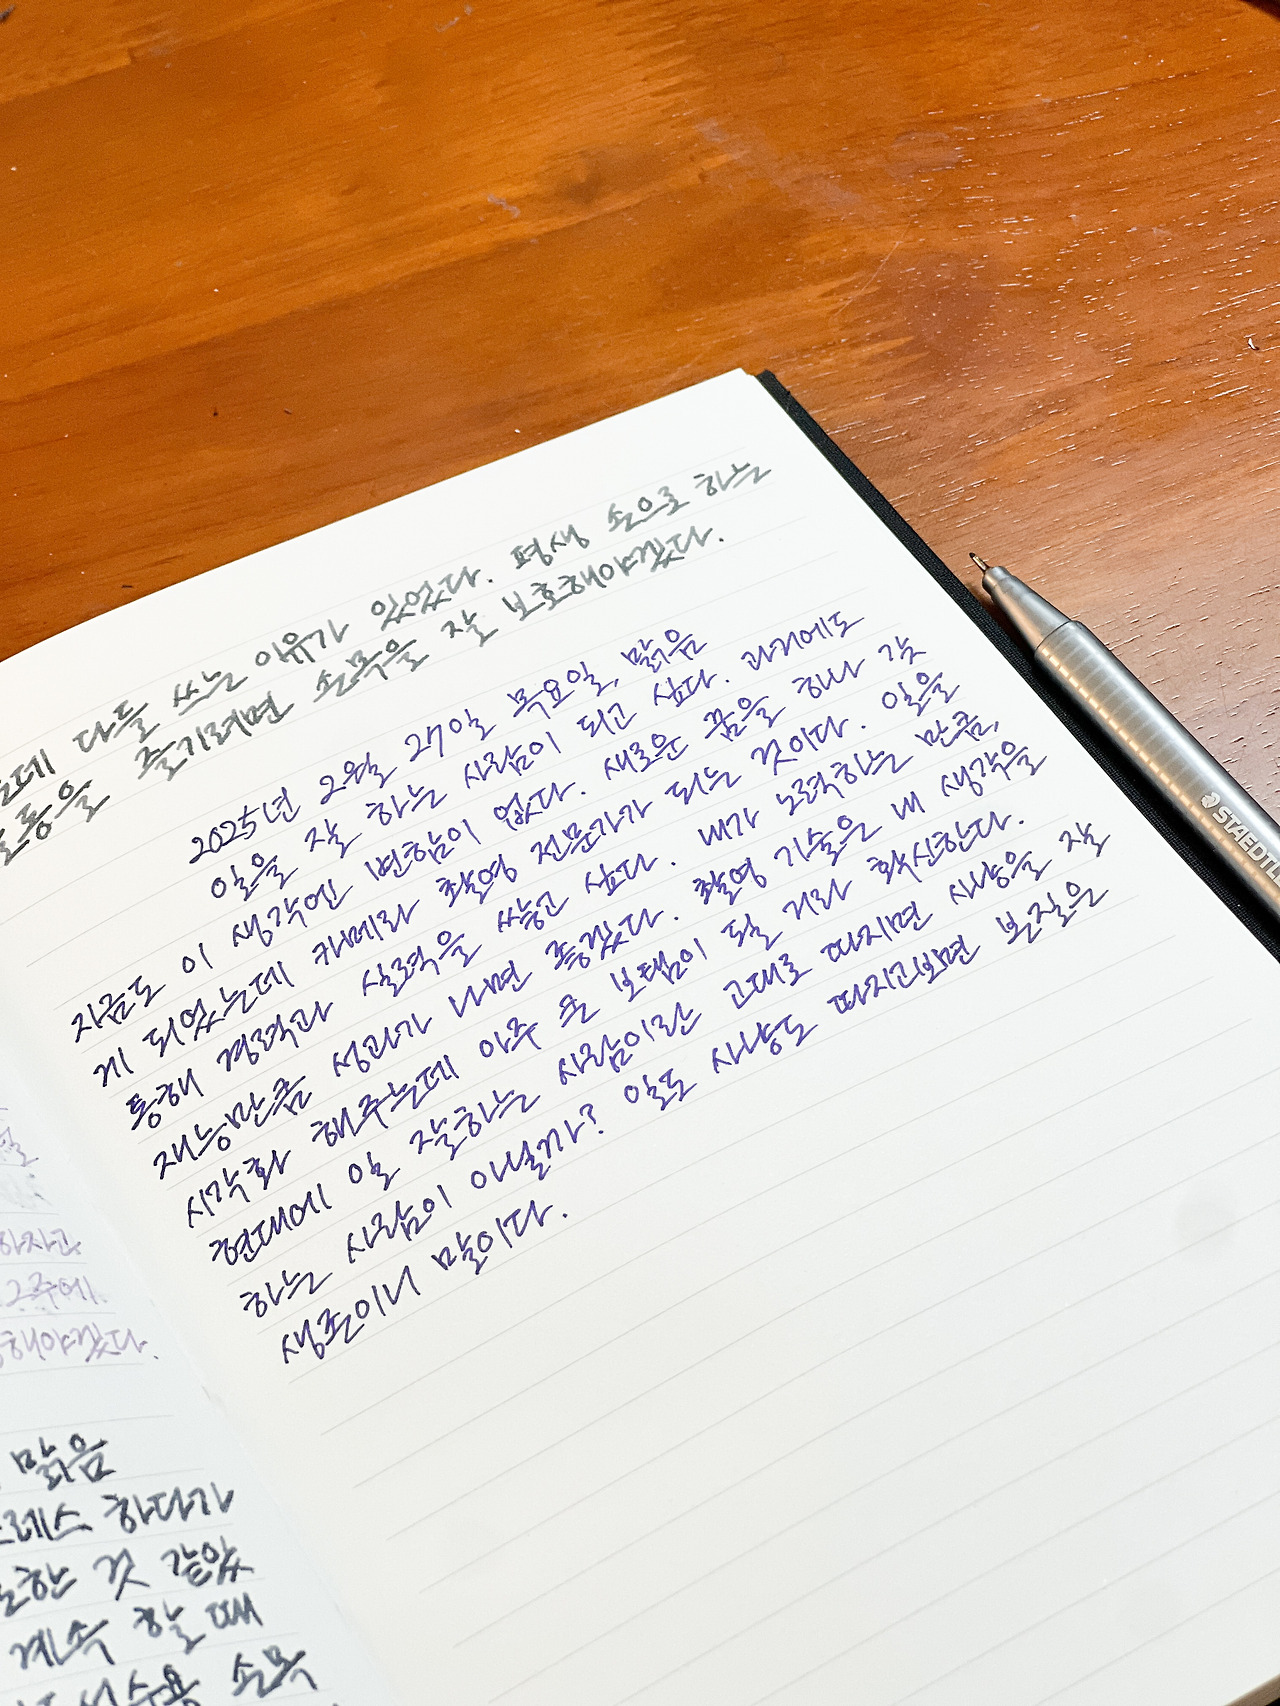 는데 다들 쓰는 이유가 있었다. 평생 손으로 하는
운동을 즐기려면 손목을 잘 보호해야겠다.
2025년 2월 27일 목요일, 맑음
일을 잘 하는 사람이 되고 싶다. 과거에도
지금도 이 생각엔 변함이 없다. 새로운 꿈을 하나 갖
게 되었는데 카메라 촬영 전문가가 되는 것이다. 일을
통해 경력과 실력을 쌓고 싶다. 내가 노력하는 만큼,
재능만큼 성과가 나면 좋겠다. 촬영 기술은 내 생각을
시각화 해주는데 아주 큰 보탬이 될 거라 확신한다.
현대에 일 잘하는 사람이란 고대로 따지면 사냥을 잘
하는 사람이 아닐까? 일도 사냥도 따지고보면 본질은
생존이니 말이다.
STAEDTLER
하자고
2주에
해야겠다.
맑음
레스 하다가
한 것 같았
계속 할 때
손목